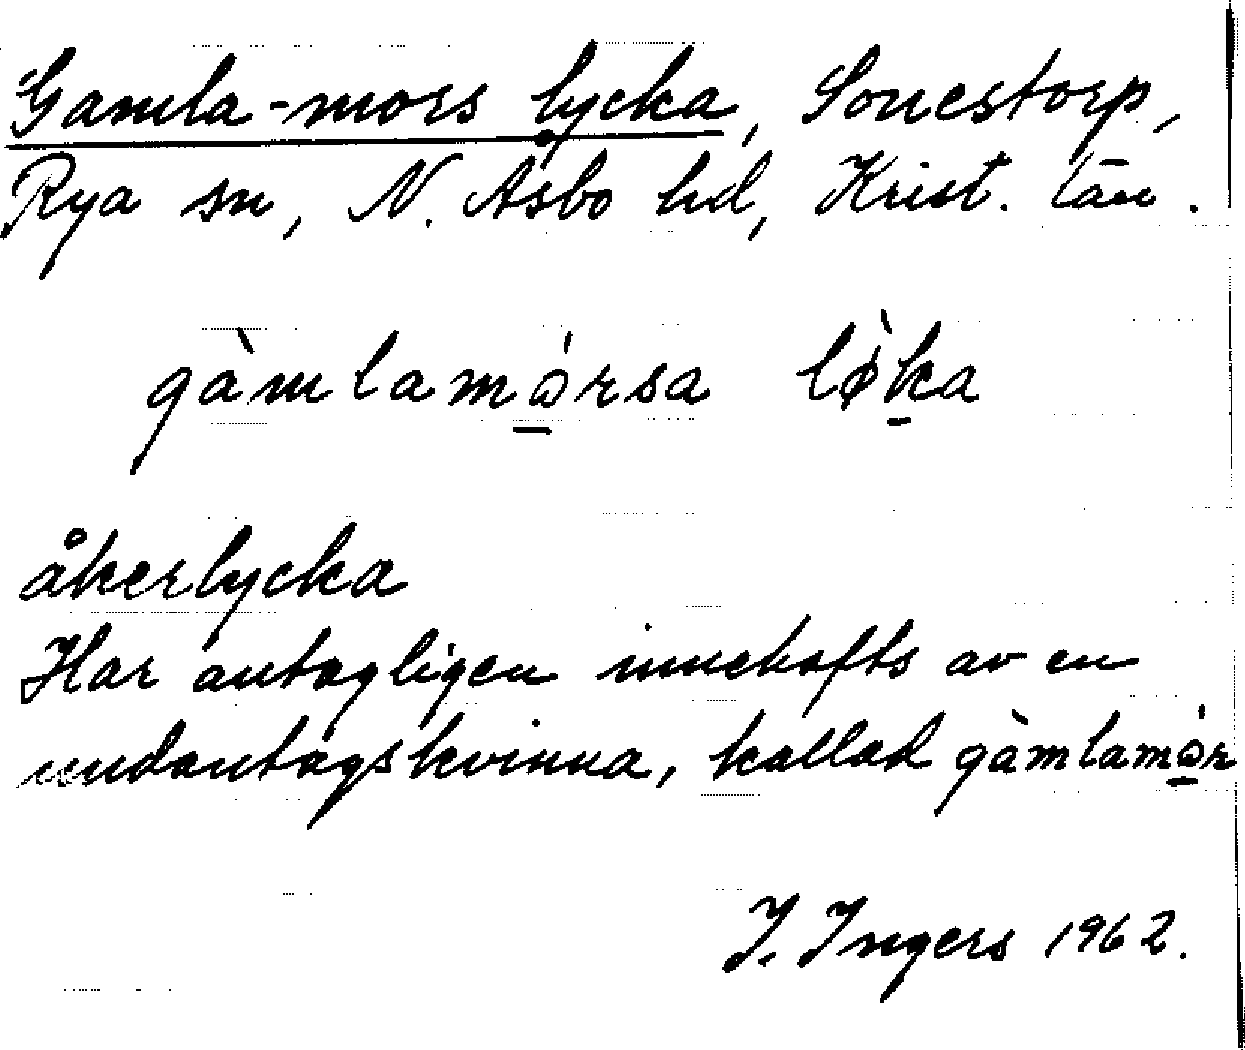 Gamla-mors lycka, Sonestorp,
Rya sn, N. Åsbo hd, Krist. län.
gàmlamɔ̱́rsa lø̀ḵa
åkerlycka
Har antagligen innehafts av en
undantagskvinna, kallad gàmlamɔ̱́r
I. Ingers 1962.